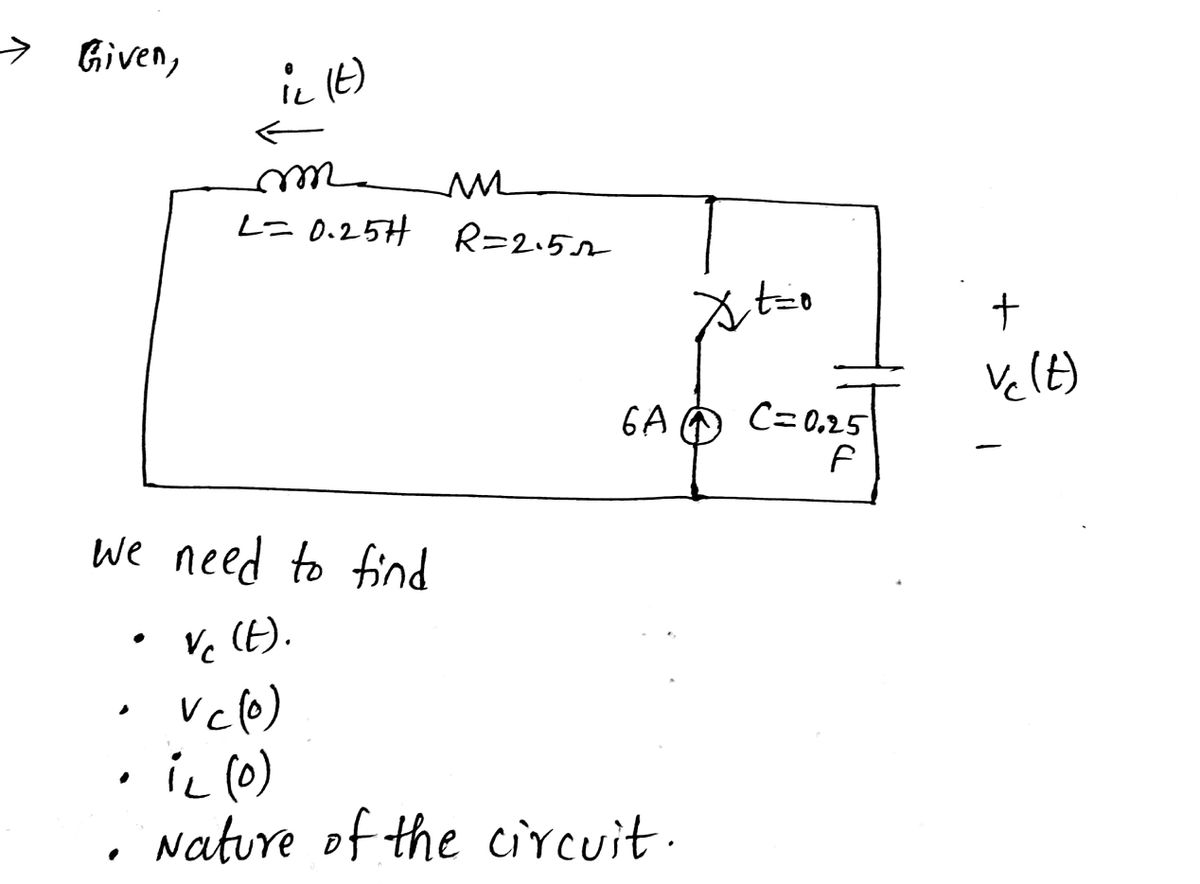 → Given,
i_L (t)
←
L = 0.25H R = 2.5Ω
t=0
+
V_c (t)
-
6A C = 0.25
F
We need to find
• V_c (t).
• V_C (0)
• i_L (0)
• Nature of the circuit.